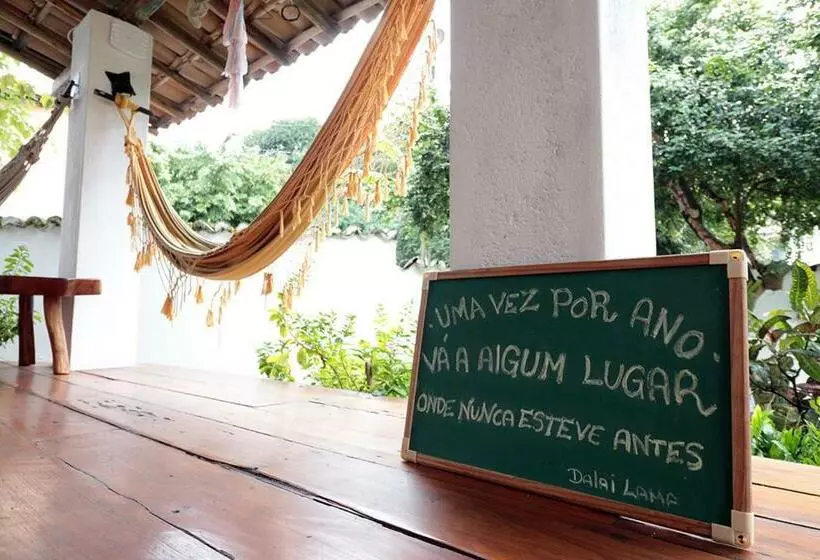 UMA VEZ POR ANO.
VÁ A AIGUM LUGAR
ONDE NUNCA ESTEVE ANTES
Dalai Lama